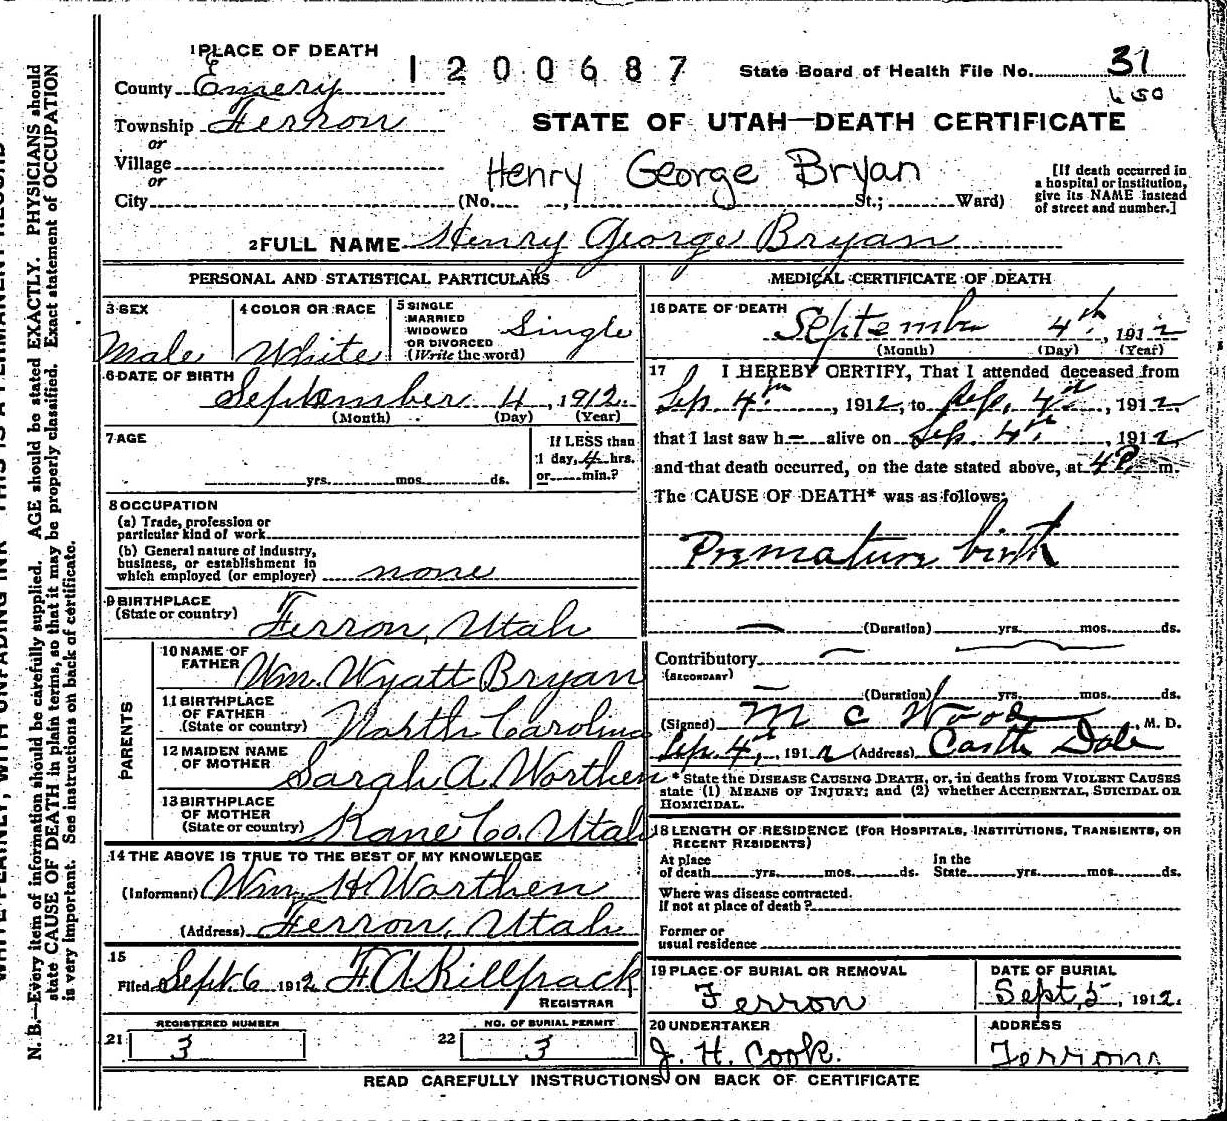 1 PLACE OF DEATH
1200687
State Board of Health File No. 31
County Emery
650
Township Ferron
STATE OF UTAH—DEATH CERTIFICATE
or
Village
or
City
Henry George Bryan
(No. , St.; Ward)
[If death occurred in
a hospital or institution,
give its NAME instead
of street and number.]
2 FULL NAME Henry George Bryan
PERSONAL AND STATISTICAL PARTICULARS
3 SEX
Male
4 COLOR OR RACE
White
5 SINGLE
MARRIED
WIDOWED
OR DIVORCED
(Write the word)
Single
6 DATE OF BIRTH
September 4, 1912.
(Month) (Day) (Year)
7 AGE
yrs. mos. ds.
If LESS than
1 day, 4 hrs.
or min.?
8 OCCUPATION
(a) Trade, profession or
particular kind of work
(b) General nature of industry,
business, or establishment in
which employed (or employer) none
9 BIRTHPLACE
(State or country) Ferron, Utah
PARENTS
10 NAME OF
FATHER Wm. Wyatt Bryan
11 BIRTHPLACE
OF FATHER
(State or country) North Carolina
12 MAIDEN NAME
OF MOTHER Sarah A. Worthen
13 BIRTHPLACE
OF MOTHER
(State or country) Kane Co. Utah
14 THE ABOVE IS TRUE TO THE BEST OF MY KNOWLEDGE
(Informant) Wm. H. Worthen
(Address) Ferron, Utah
15
Filed Sept. 6 1912 F A Killpack
REGISTRAR
21 REGISTERED NUMBER
3
22 NO. OF BURIAL PERMIT
3
MEDICAL CERTIFICATE OF DEATH
16 DATE OF DEATH
September 4th, 1912
(Month) (Day) (Year)
17 I HEREBY CERTIFY, That I attended deceased from
Sep 4th, 1912, to Sep. 4th, 1912,
that I last saw h— alive on Sep. 4th, 1912,
and that death occurred, on the date stated above, at 4P. m.
The CAUSE OF DEATH* was as follows:
Premature birth
(Duration) yrs. mos. ds.
Contributory
(SECONDARY)
(Duration) yrs. mos. ds.
(Signed) M C Wood, M. D.
Sep. 4th, 1912 (Address) Castle Dale
* State the DISEASE CAUSING DEATH, or, in deaths from VIOLENT CAUSES
state (1) MEANS OF INJURY; and (2) whether ACCIDENTAL, SUICIDAL OR
HOMICIDAL.
18 LENGTH OF RESIDENCE (FOR HOSPITALS, INSTITUTIONS, TRANSIENTS, OR
RECENT RESIDENTS)
At place
of death yrs. mos. ds.
In the
State yrs. mos. ds.
Where was disease contracted.
If not at place of death?
Former or
usual residence
19 PLACE OF BURIAL OR REMOVAL
Ferron
DATE OF BURIAL
Sept, 5, 1912.
20 UNDERTAKER
J. H. Cook.
ADDRESS
Ferron
READ CAREFULLY INSTRUCTIONS ON BACK OF CERTIFICATE
N. B.—Every item of information should be carefully supplied. AGE should be stated EXACTLY. PHYSICIANS should
state CAUSE OF DEATH in plain terms, so that it may be properly classified. Exact statement of OCCUPATION
is very important. See instructions on back of certificate.